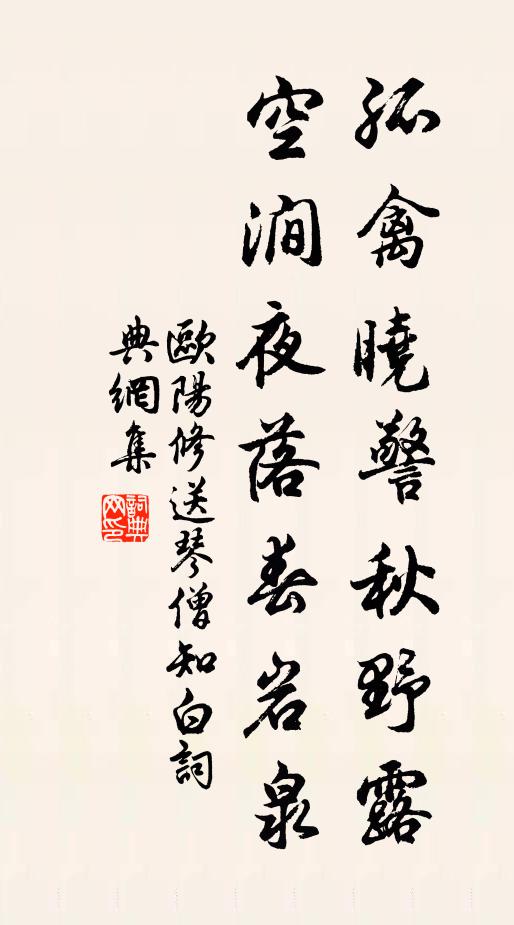 孤禽曉警秋野露
空澗夜落春岩泉
歐陽修送琴僧知白詞
典網集
詞典
网印